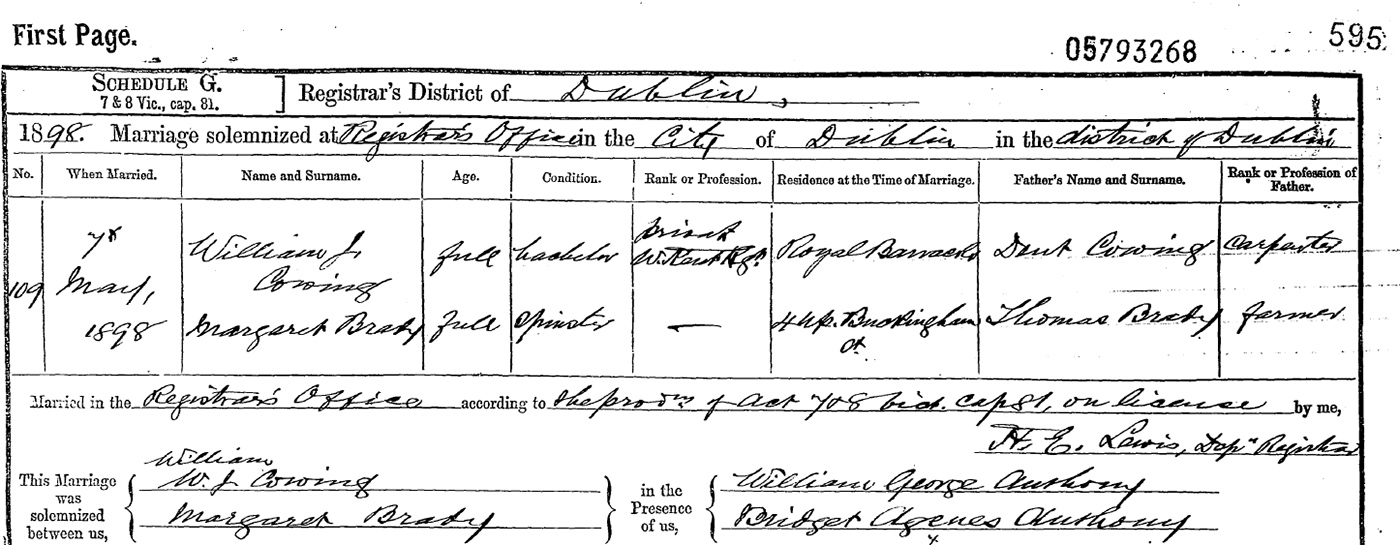 First Page.
05793268
595
SCHEDULE G.
7 & 8 Vic., cap. 81.
Registrar's District of Dublin,
1898. Marriage solemnized at Registrar's Office in the City of Dublin in the district of Dublin
No. When Married. Name and Surname. Age. Condition. Rank or Profession. Residence at the Time of Marriage. Father's Name and Surname. Rank or Profession of Father.
109 7th May, 1898
William J. Cowing full bachelor Privat W. Kent Rgt. Royal Barracks Dent Cowing Carpenter
Margaret Brady full Spinster — 4 Up. Buckingham St. Thomas Brady farmer
Married in the Registrar's Office according to the provns of Act 7 & 8 Vict. cap 81, on license by me,
H. E. Lewis, Depy Registrar
This Marriage was solemnized between us,
William
W. J. Cowing
Margaret Brady
in the Presence of us,
William George Anthony
Bridget Agenes Anthony